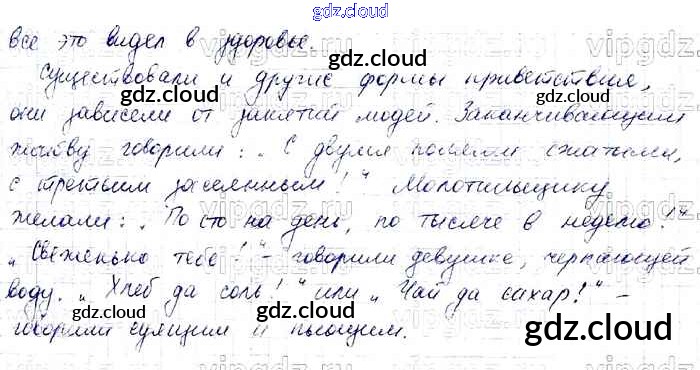 gdz.cloud
все это видел в здоровье.
Существовали и другие формы приветствия,
gdz.cloud
они зависели от занятий людей. Заканчивающим
жатву говорили: „С двумя полями сжатыми,
с третьим засеянным!" Молотильщику
желали: „По сто на день, по тысяче в неделю!"
„Свеженько тебе!" - говорили девушке, черпающей
воду. „Хлеб да соль!" или „Чай да сахар!" -
говорили едящим и пьющим.
gdz.cloud
gdz.cloud
gdz.cloud
gdz.cloud
gdz.cloud
gdz.cloud
gdz.cloud